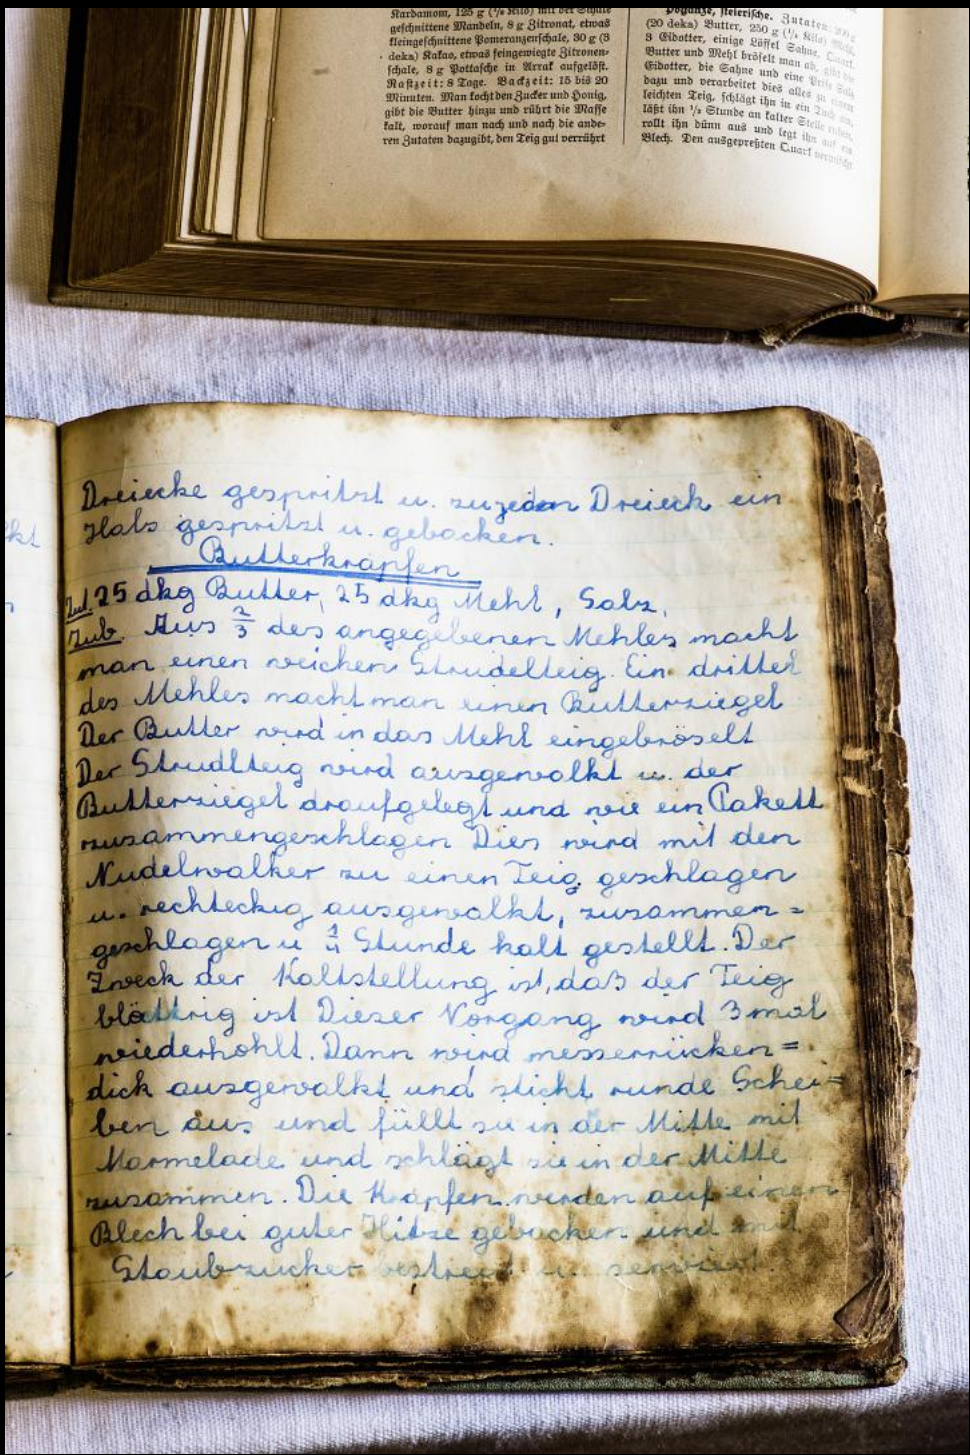 Kardamom, 125 g (⅛ Kilo) mit der Schale
geschnittene Mandeln, 8 g Zitronat, etwas
kleingeschnittene Pomeranzenschale, 30 g (3
deka) Kakao, etwas feingewiegte Zitronen-
schale, 8 g Pottasche in Arrak aufgelöst.
Rastzeit: 8 Tage. Backzeit: 15 bis 20
Minuten. Man kocht den Zucker und Honig,
gibt die Butter hinzu und rührt die Masse
kalt, worauf man nach und nach die ande-
ren Zutaten dazugibt, den Teig gut verrührt
Poganze, steierische. Zutaten: 200 g
(20 deka) Butter, 250 g (¼ Kilo) Mehl,
3 Eidotter, einige Löffel Sahne, Quark.
Butter und Mehl bröselt man ab, gibt die
Eidotter, die Sahne und eine Prise Salz
dazu und verarbeitet dies alles zu einem
leichten Teig, schlägt ihn in ein Tuch ein,
läßt ihn ½ Stunde an kalter Stelle ruhen,
rollt ihn dünn aus und legt ihn auf ein
Blech. Den ausgepreßten Quark vermischt
kt
Dreiecke gespritzt u. zu jeden Dreieck ein
Hals gespritzt u. gebacken.
Butterkrapfen
Zut. 25 dkg Butter, 25 dkg Mehl, Salz,
Zub. Aus 2/3 des angegebenen Mehles macht
man einen weichen Strudelteig. Ein drittel
des Mehles macht man einen Butterziegel
Der Butter wird in das Mehl eingebröselt
Der Strudlteig wird ausgewalkt u. der
Butterziegel draufgelegt und wie ein Pakett
zusammengeschlagen Dies wird mit den
Nudelwalker zu einen Teig geschlagen
u. rechteckig ausgewalkt, zusammen=
geschlagen u 1/4 Stunde kalt gestellt. Der
Zweck der Kaltstellung ist, daß der Teig
blättrig ist Dieser Vorgang wird 3 mal
wiederhohlt. Dann wird messerrücken=
dick ausgewalkt und sticht runde Schei=
ben aus und füllt sie in der Mitte mit
Marmelade und schlägt sie in der Mitte
zusammen. Die Krapfen werden auf einen
Blech bei guter Hitze gebacken und mit
Staubzucker bestreut u. serviert.